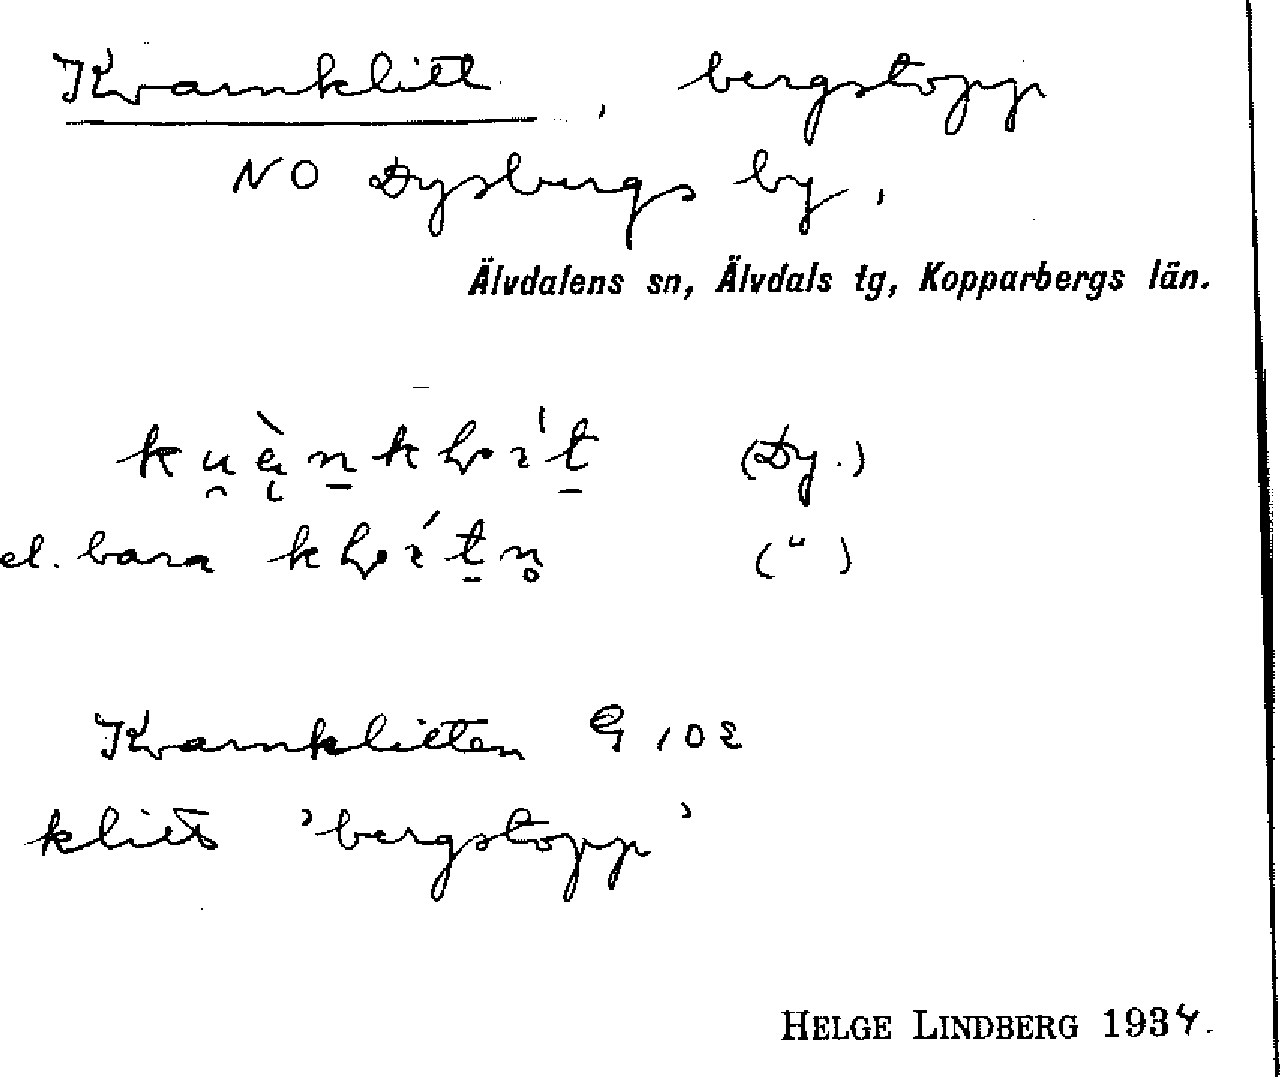 Kvarnklitt, bergstopp
NO Dysbergs by,
Älvdalens sn, Älvdals tg, Kopparbergs län.
(Dy.)
el. bara (")
Kvarnklitten G 102
'bergstopp'
HELGE LINDBERG 1934.